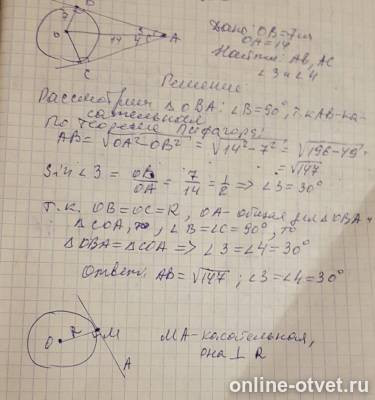 B
7
O
14
3
4
A
C
Дано: OB=7см
OA=14
Найти: AB, AC
∠3 и ∠4
Решение
Рассмотрим ΔOBA: ∠B=90°, т.к AB-ка-
сательная
По теореме Пифагора:
AB=√OA²-OB² = √14²-7² = √196-49 =
= √147
Sin∠3 = OB/OA = 7/14 = 1/2 => ∠3=30°
Т.к. OB=OC=R, OA-общая для ΔOBA и
ΔCOA, ∠B=∠C=90°, то
ΔOBA=ΔCOA => ∠3=∠4=30°
Ответ: AB=√147; ∠3=∠4=30°
O
R
M
A
MA-касательная,
она ⊥ R
online-otvet.ru